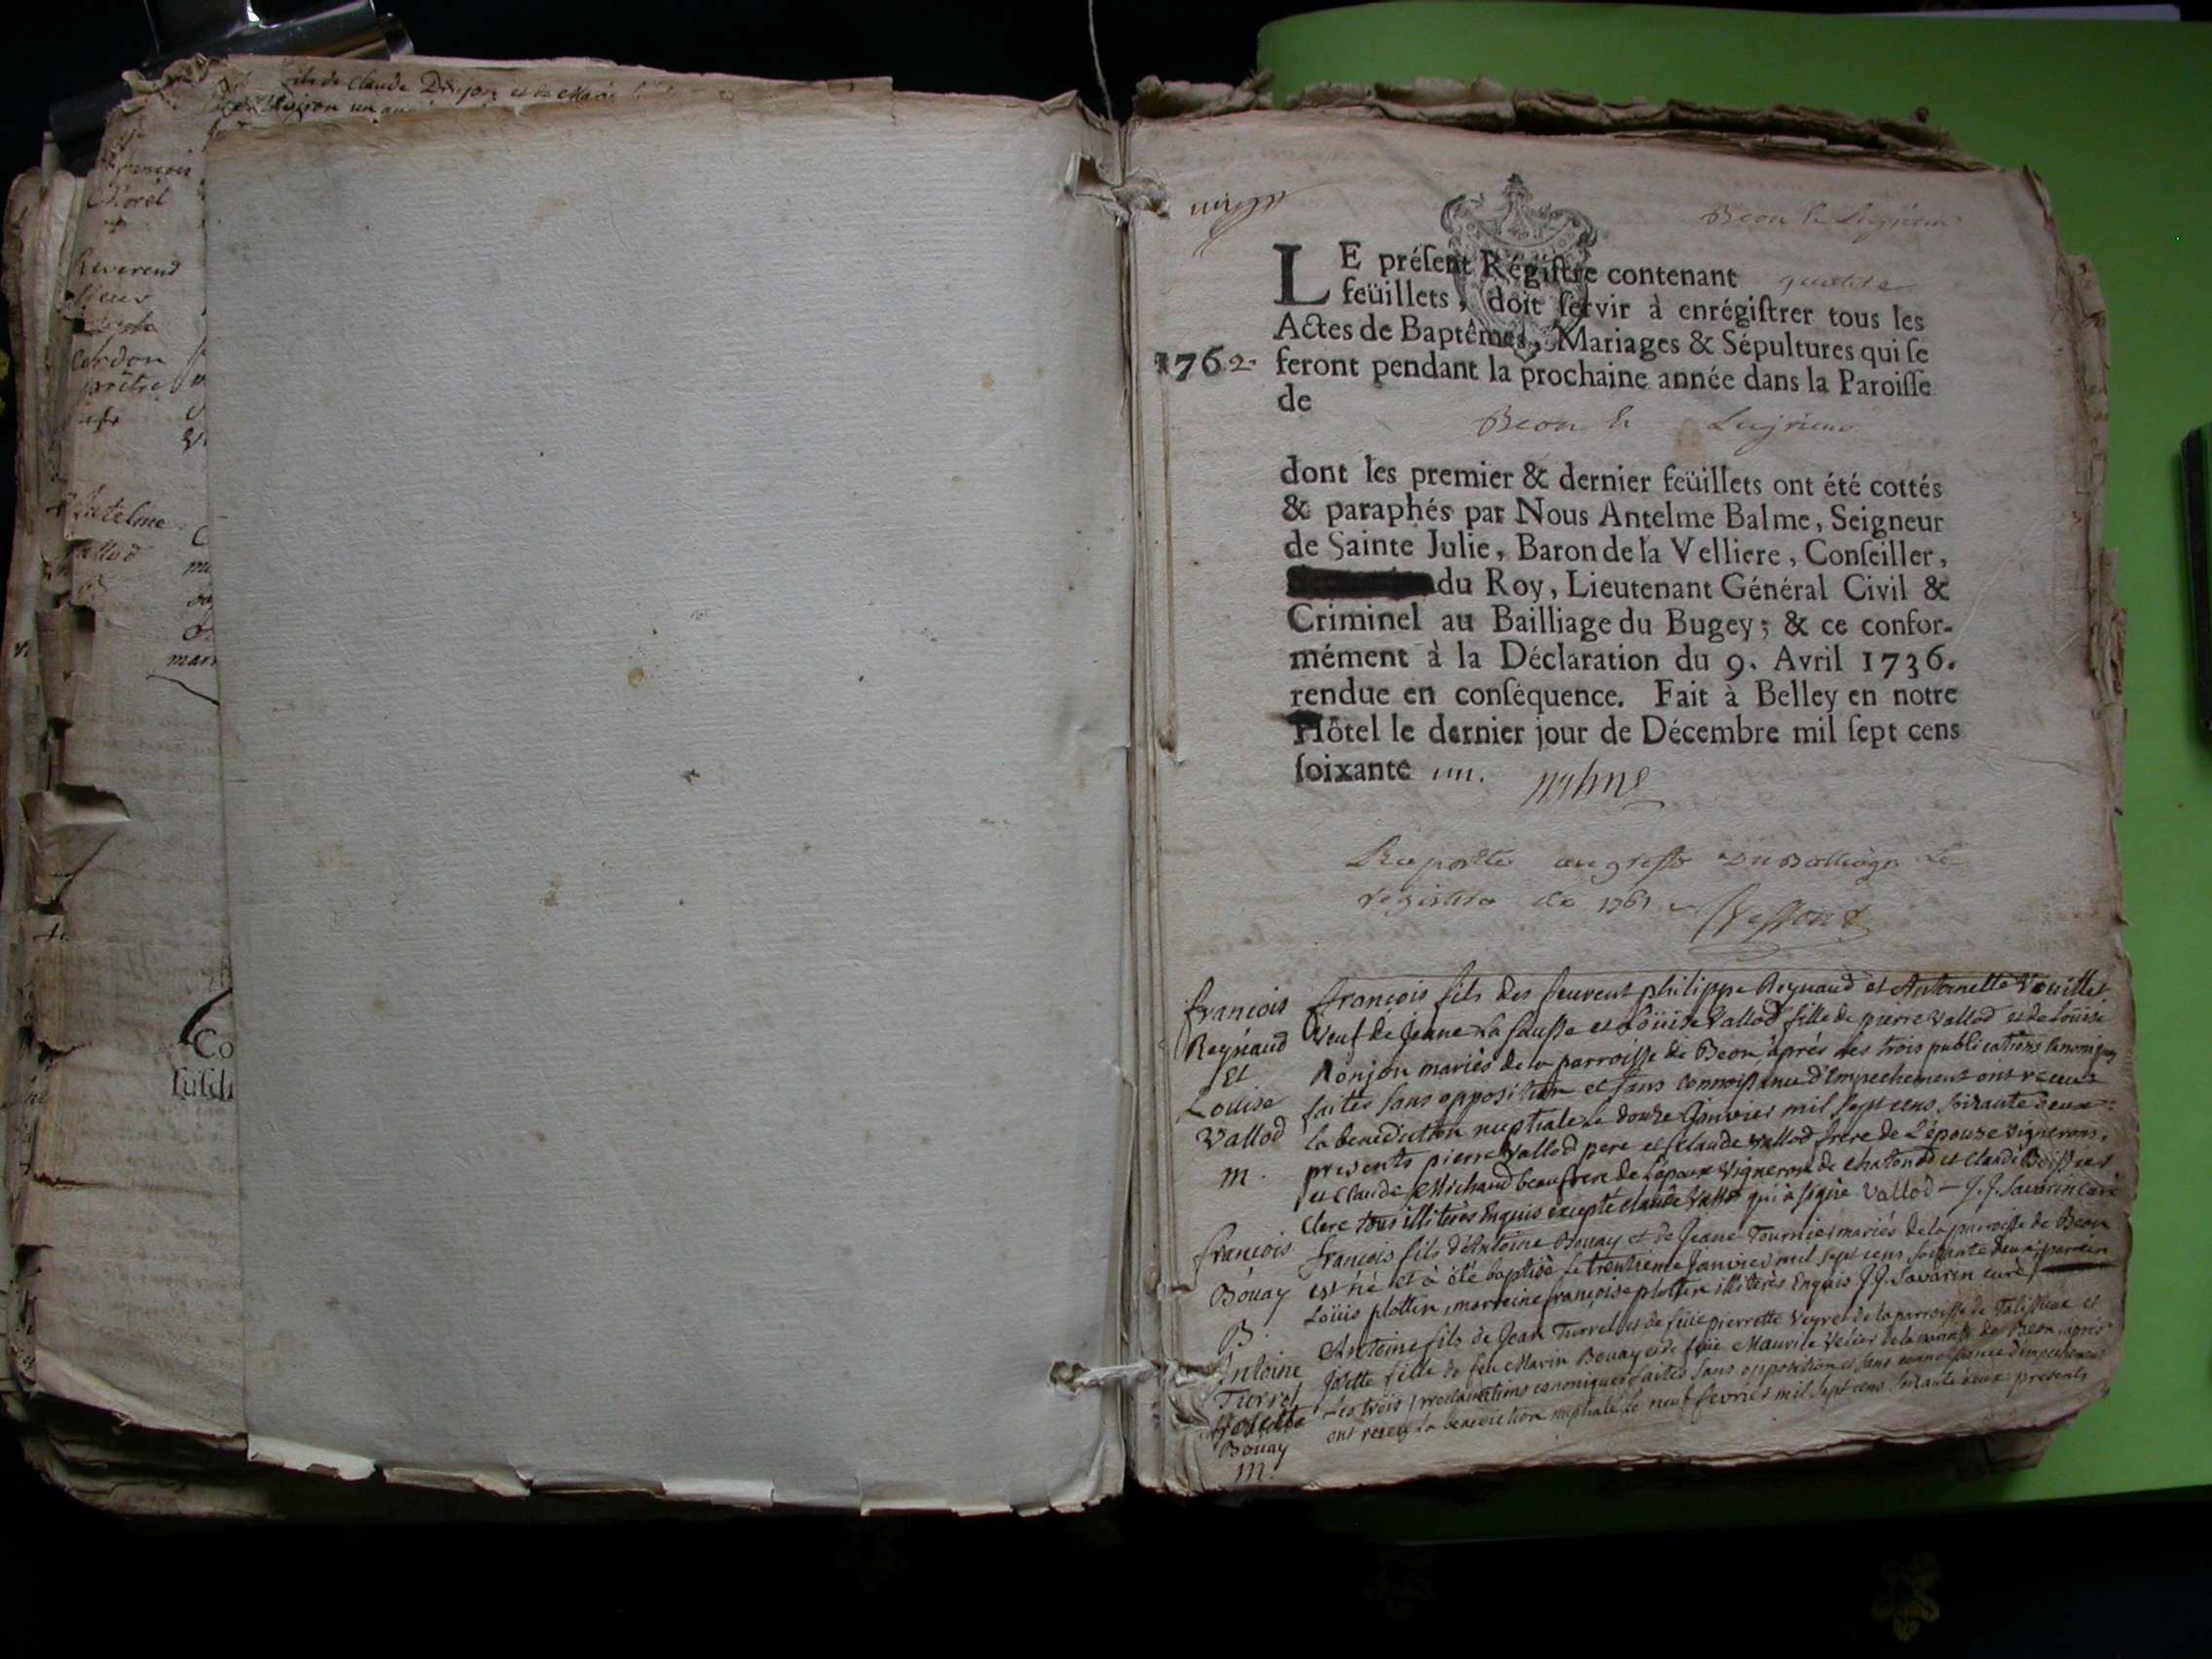 fils de Claude Drujon et de Marie
un an
françois
Morel
Reverend
Cordon
prêtre
Antelme
Vallod
Co
Beon le Lujrieux
LE préſent Régiſtre contenant quatre
feüillets, doit ſervir à enrégiſtrer tous les
Actes de Baptêmes, Mariages & Sépultures qui ſe
1762. feront pendant la prochaine année dans la Paroiſſe
de
Beon le Lujrieux
dont les premier & dernier feüillets ont été cottés
& paraphés par Nous Antelme Balme, Seigneur
de Sainte Julie, Baron de la Velliere, Conſeiller,
du Roy, Lieutenant Général Civil &
Criminel au Bailliage du Bugey; & ce confor-
mément à la Déclaration du 9. Avril 1736.
rendue en conſéquence. Fait à Belley en notre
Hôtel le dernier jour de Décembre mil ſept cens
ſoixante un.
Raporté au greffe Du Balliage Le
registre de 1761
françois
Reynaud
Et
Loüise
Vallod
m.
françois fils des feu philippe Reynaud et Antoinette Vouillet
Veuf de Jeane La fausse et Loüise Vallod fille de pierre Vallod et de Loüise
Monjon mariés de la parroisse de Beon, après les trois publications canoniques
faites sans opposition et sans connoissance d'Empechement ont receus
la benediction nuptiale Le douze Janvier mil sept cens soixante deux
presents pierre Vallod pere et Claude Vallod frere de L'épouse vignerons,
et Claude Michaud beaufrere de L'époux Vigneron de chatonod et Claude Boissier
Clerc tous illiterés Enquis excepté claude Vallod qui à signé. Vallod — J.J. Savarin curé
françois
Bouay
B.
françois fils d'Antoine Bouay et de Jeane Tournier mariés de la parroisse de Beon
est né et à été baptisé Le trentieme Janvier mil sept cens soixante deux parrein
Loüis plottin, marreine françoise plottin illiterés Enquis J.J. Savarin curé
Antoine
Turrel
Josette
Bouay
m.
Antoine fils de Jean Turrel et de feüe pierrette Veyret de la parroisse de Talissieu et
Josette fille de feu Marin Bouay et de feüe Maurise de la parroisse de Beon, après
Les trois proclamations canoniques faites sans opposition et sans connoissance d'empechement
ont receus La benediction nuptiale Le neuf fevrier mil sept cens soixante deux presents